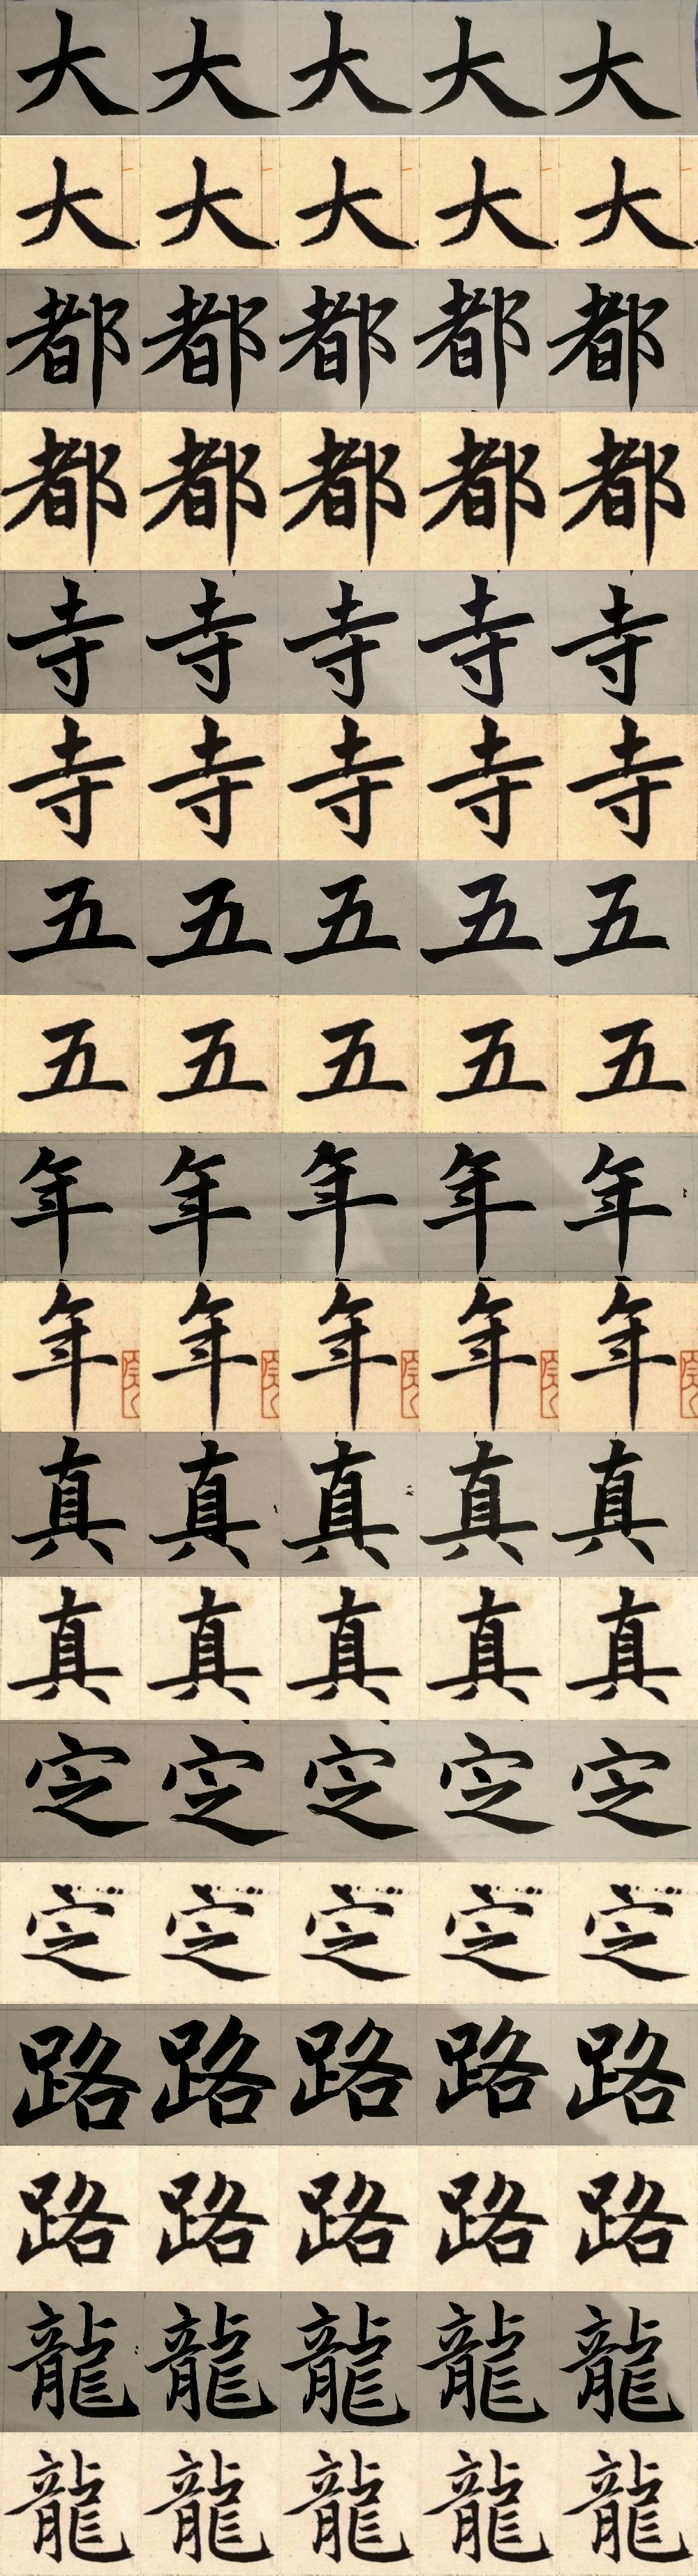 大大大大大
大大大大大
都都都都都
都都都都都
寺寺寺寺寺
寺寺寺寺寺
五五五五五
五五五五五
年年年年年
年年年年年
真真真真真
真真真真真
定定定定定
定定定定定
路路路路路
路路路路路
龍龍龍龍龍
龍龍龍龍龍